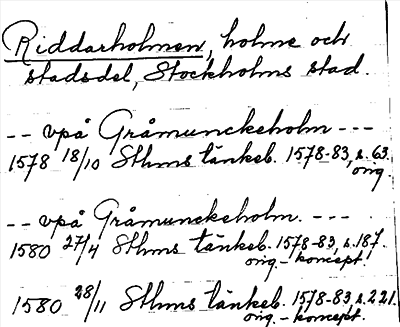 Riddarholmen, holme och
stadsdel, Stockholms stad.
-- vpå Gråmunckeholm ---
1578 18/10 Sthms tänkeb. 1578-83, s. 63.
orig.
-- vpå Gråmunckeholm. ---
1580 27/4 Sthms tänkeb. 1578-83, s. 187.
orig. - koncept.
1580 28/11 Sthms tänkeb. 1578-83, s. 221.
orig. - koncept.